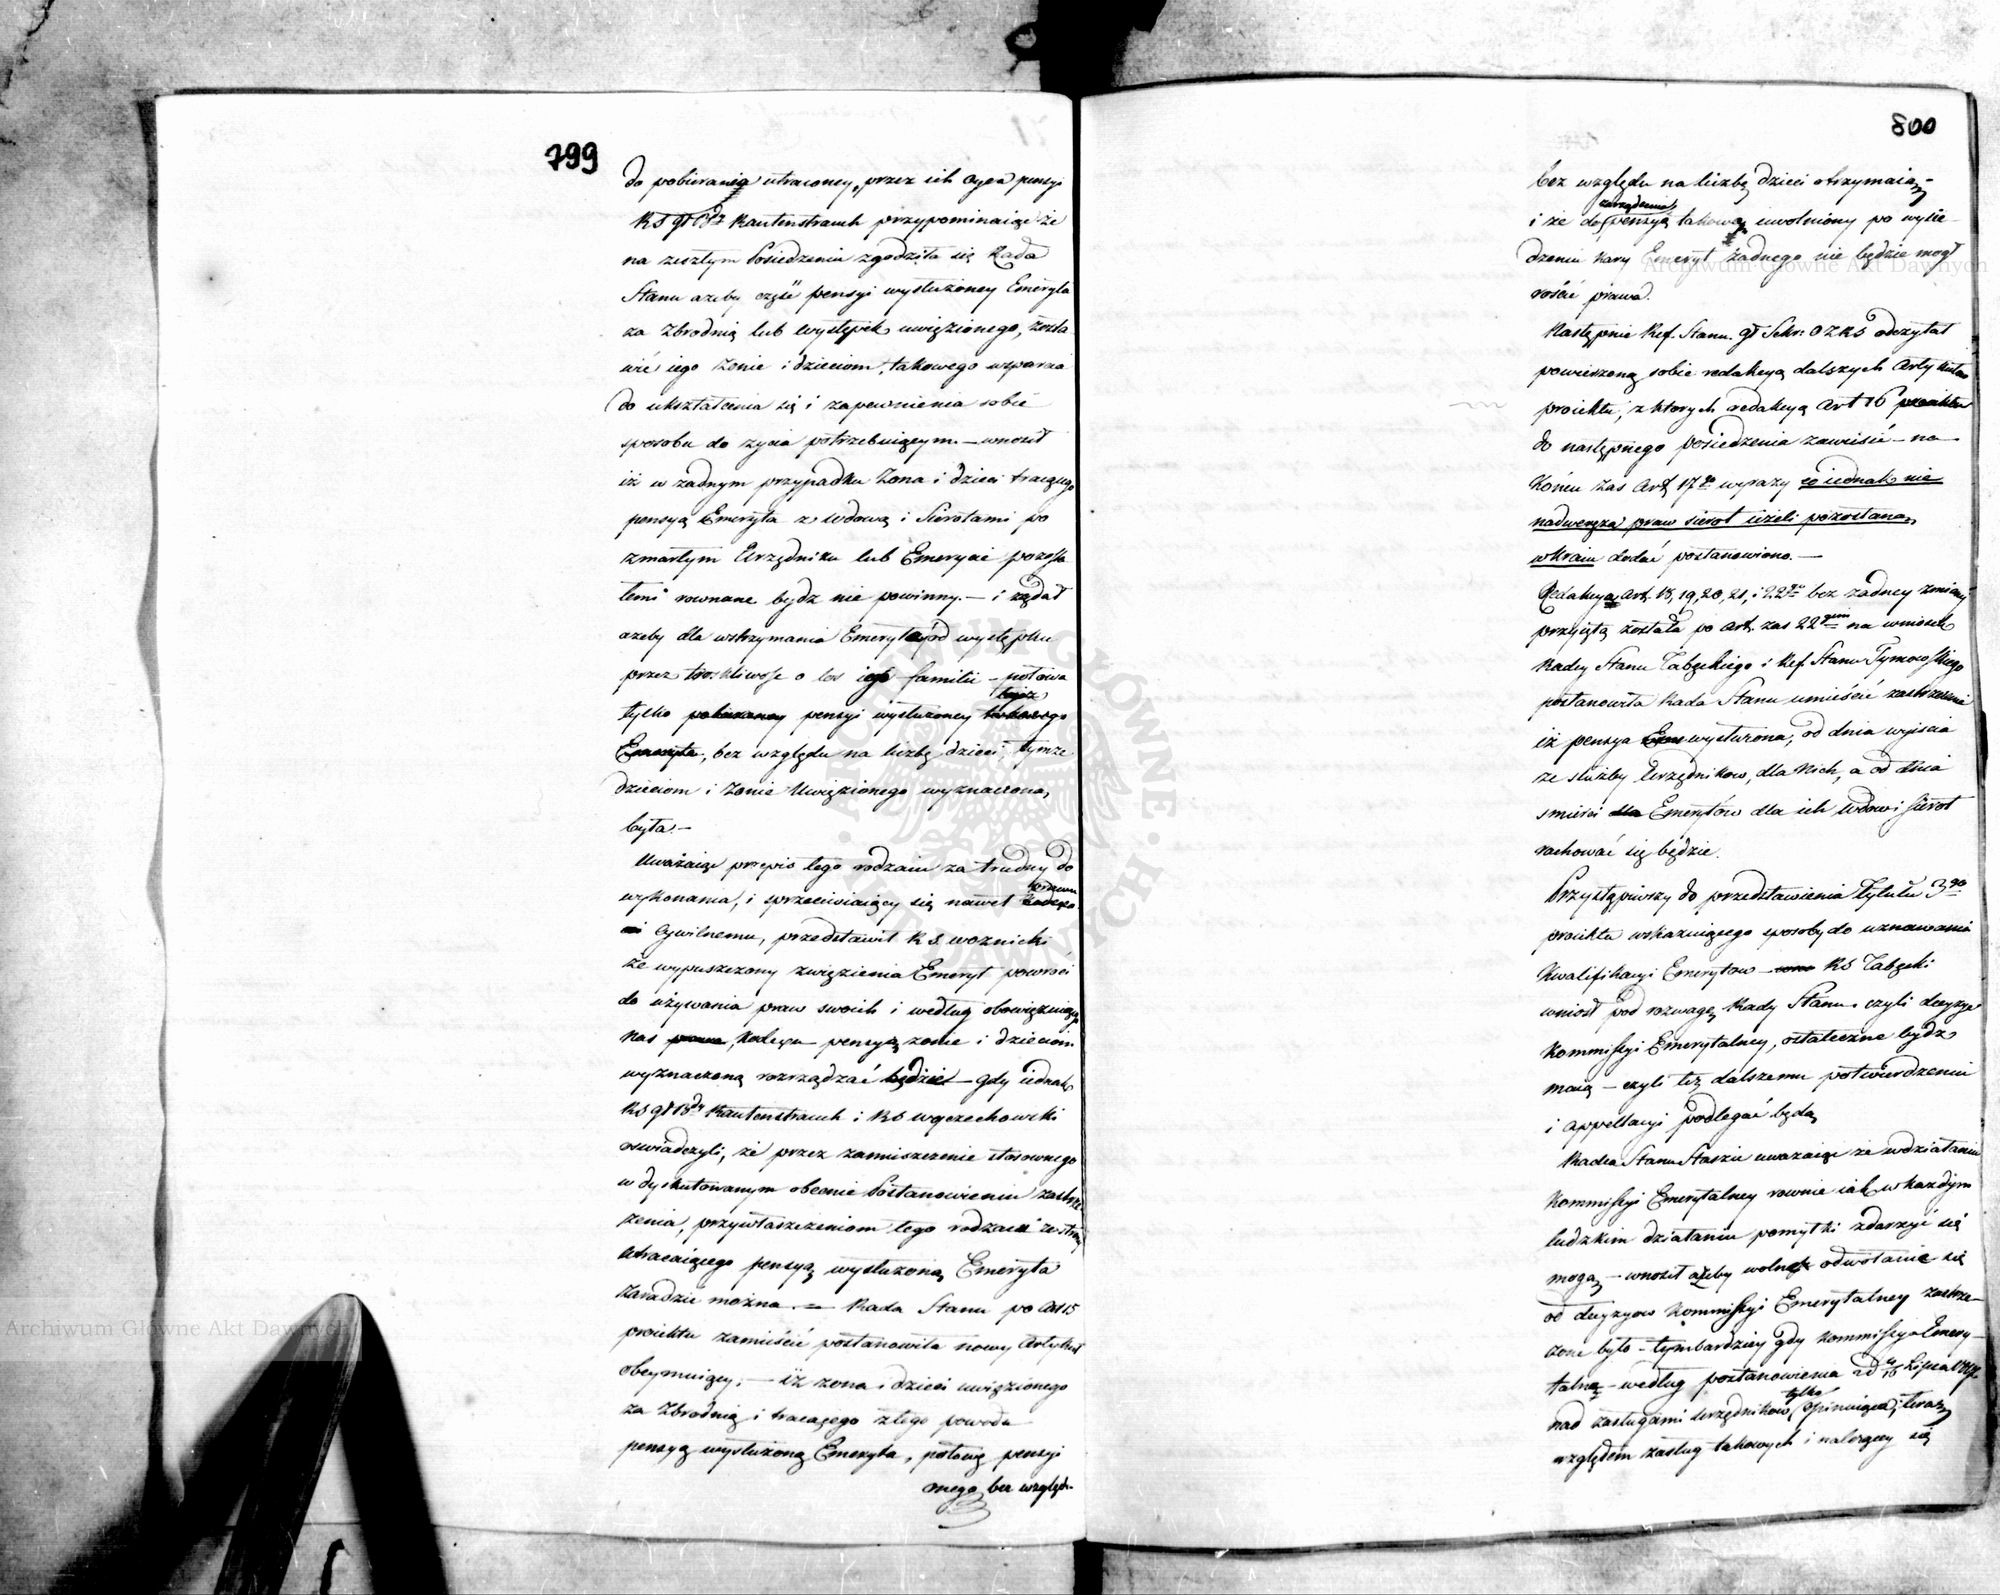 799
do pobierania utraconey, przez ich Oyca pensyi
RS gł Bdy Kautenstrauch przypominaiąc że
na zeszłym Posiedzeniu zgodziła się Rada
Stanu ażeby część pensyi wysłużoney Emeryta
za zbrodnią lub występek uwięzionego, zosta
wić iego Żonie i dzieciom, takowego wsparcia
do ukształcenia się i zapewnienia sobie
sposobu do życia potrzebuiącym. — wnosił
iż w żadnym przypadku Żona i dzieci tracącego
pensyą Emeryta z wdową i Sierotami po
zmarłym Urzędniku lub Emerycie pozosta
łemi rownane bydź nie powinny. — i żądał
ażeby dla wstrzymania Emeryta od występku
przez troskliwość o los iego familii — połowa
tylko pobieraney pensyi wysłużoney takowego
Emeryta, bez względu na liczbę dzieci, tymże
dzieciom i Żonie Uwięzionego wyznaczona,
była. —
Uważaiąc przepis tego rodzaiu za trudny do
wykonania, i sprzeciwiaiący się nawet
Cywilnemu, przedstawił R S. Woznicki
że wypuszczony z więzienia Emeryt powróci
do używania praw swoich i według obowiązuiącego
nas prawa, Kodexu pensyą żonie i dzieciom
wyznaczoną rozrządzać będzie — gdy iednak
RS gł Bdy Kautenstrauch i RS Węgrzechowski
oswiadczyli, że przez zamieszczenie stosownego
w dyskutowanym obecnie Postanowieniu zastrze
żenia, przywłaszczeniom tego rodzaiu ze strony
utracaiącego pensyą wysłużoną Emeryta
zaradzić można. — Rada Stanu po Art 15
proiektu zamieścić postanowiła nowy Artykuł
obeymuiący; — iż żona i dzieci uwięzionego
za Zbrodnią i tracącego z tego powodu
pensyą wysłużoną Emeryta, połowę pensyi
bez względu
800
bez względu na liczbę dzieci otrzymaią —
zarządzania
i że do pensyą takową uwolniony po wysie
dzeniu kary Emeryt żadnego nie będzie mogł
rościć prawa.
Następnie Ref. Stanu gł Sekr: OZRS odczytał
powierzoną sobie redakcyą dalszych Artykułow
proiektu, z ktorych redakcyą Art 16 proiektu
do następnego posiedzenia zawiesić — na
Końcu zas Art 17go wyrazy co iednak nie
nadweręża praw sierot ieżeli pozostaną
w Kraiu dodać postanowiono. —
Redakcya Art. 18, 19, 20, 21, i 22go bez żadney zmiany
przyiętą została po Art. zas 22gim na wniosek
Radcy Stanu Łabęckiego i Ref. Stanu Tymowskiego
postanowiła Rada Stanu umieścić zastrzeżenie
iż pensya wysłużona, od dnia wyiscia
ze służby Urzędnikow, dla Nich, a od dnia
smierci dla Emerytów dla ich Wdow i Sierot
rachować się będzie.
Przystąpiwszy do przedstawienia Tytułu 3go
proiektu wskazuiącego sposoby do uznawania
Kwalifikacyi Emerytow — RS Łabęcki
wniosł pod rozwagę Rady Stanu czyli decyzye
Kommissyi Emerytalney, ostateczne bydź
maią — czyli też dalszemu potwierdzeniu
i appellacyi podlegać będą
Radca Stanu Staszic uważaiąc że w działaniu
Kommissyi Emerytalney rownie iak w każdym
ludzkim działaniu pomyłki zdarzyć się
mogą — wnosił ażeby wolne odwołanie się
od decyzyow Kommissyi Emerytalney zastrze-
żone było — tymbardziey gdy Kommissya Emery-
talna — według postanowienia
tylko
nad zasługami Urzędnikow Opiniuiąca, teraz
względem zasług takowych i należącey się